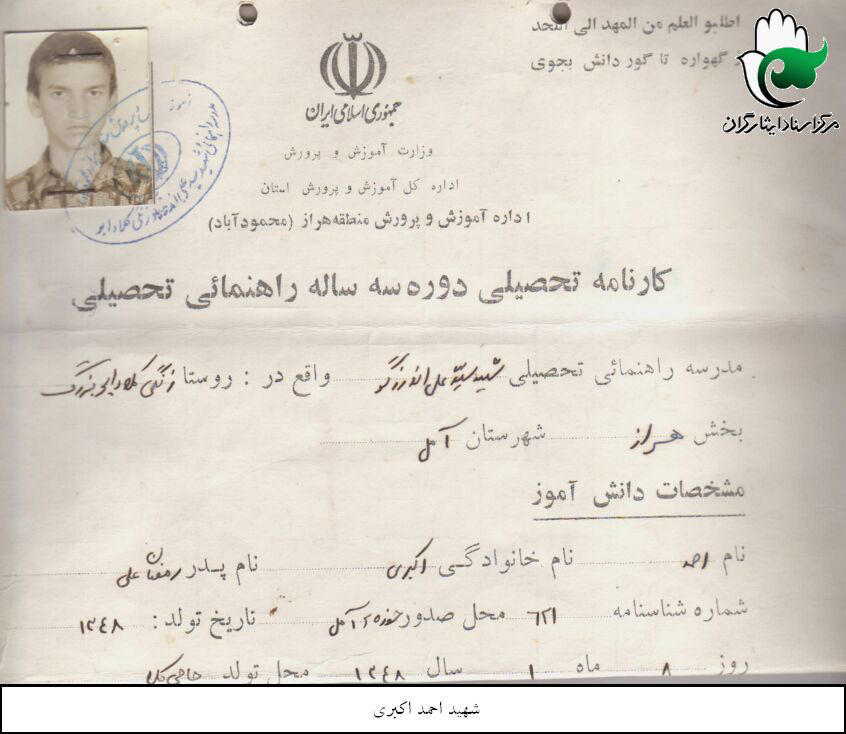 اطلبو العلم من المهد الی اللحد
گهواره تا گور دانش بجوی
مرکز اسناد ایثارگران
جمهوری اسلامی ایران
وزارت آموزش و پرورش
اداره کل آموزش و پرورش استان
اداره آموزش و پرورش منطقه هراز (محمودآباد)
کارنامه تحصیلی دوره سه ساله راهنمائی تحصیلی
مدرسه راهنمائی تحصیلی شهید سید علی اندرزگو واقع در : روستا زنگی کلا دابو بزرگ
بخش هراز شهرستان آمل
مشخصات دانش آموز
نام احمد نام خانوادگی اکبری نام پدر رمضان علی
شماره شناسنامه ۶۲۱ محل صدور حوزه ۲ آمل تاریخ تولد : ۱۳۴۸
روز ۸ ماه ۱ سال ۱۳۴۸ محل تولد حاجی کلا
شهید احمد اکبری